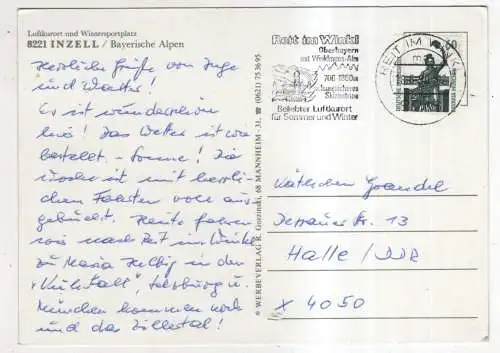 Luftkurort und Wintersportplatz
8221 INZELL / Bayerische Alpen
Herzliche Grüße von Inge
und Walter!
Es ist wunderschön
hier! Das Wetter ist wie
bestellt - Sonne! Die
Woche ist mit herrli-
chen Fahrten voll aus-
gebucht. Heute fahren
wir nach Reit im Winkl
zu Maria Hellwig in den
"Kuhstall", Salzburg u.
München kommen noch
und das Zillertal!
© WERBEVERLAG R. Gorzinski, 68 MANNHEIM - 31, ☎ (0621) 75 38 95
Reit im Winkl
Oberbayern
mit Winklmoos-Alm
700-1860m
schneesicheres
Skizentrum
Beliebter Luftkurort
für Sommer und Winter
REIT IM WINKL
60
Käthchen
Dessauer Str. 13
Halle / DDR
X 4050